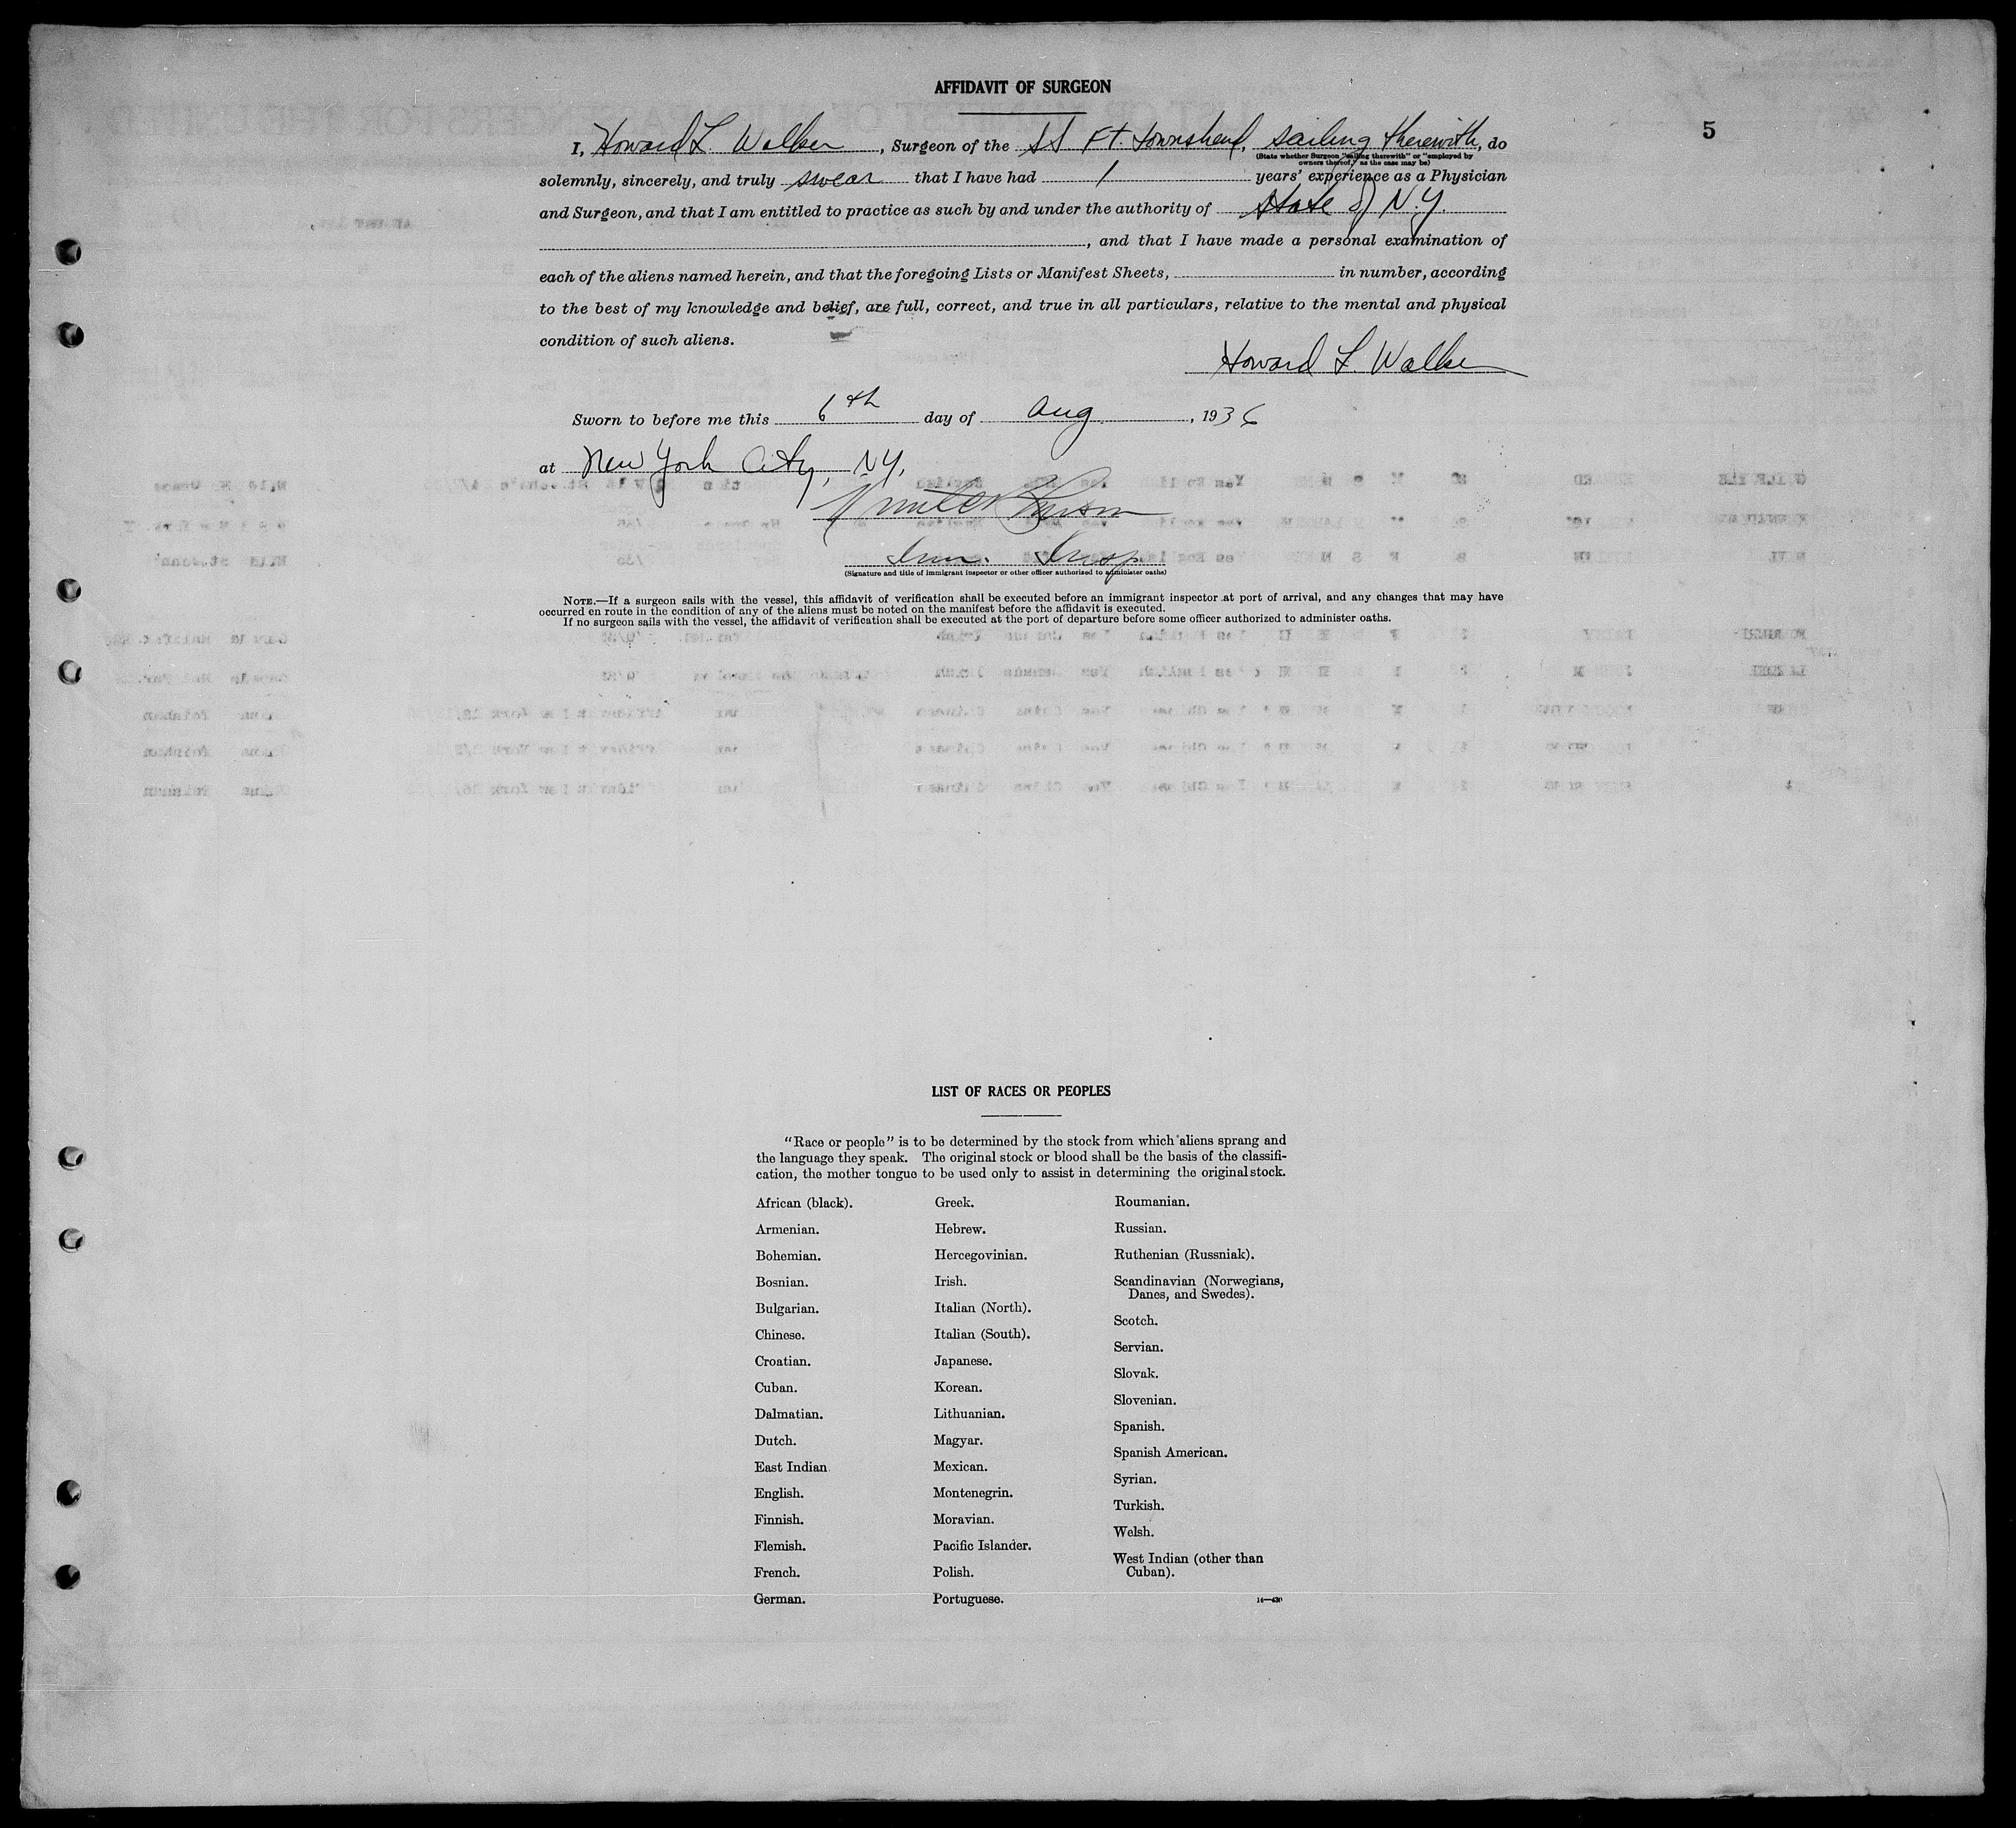 AFFIDAVIT OF SURGEON
5
I, Howard L. Walker, Surgeon of the SS Ft. Townshend, sailing therewith, do
(State whether Surgeon "sailing therewith" or "employed by
owners thereof," as the case may be)
solemnly, sincerely, and truly swear that I have had 1 years' experience as a Physician
and Surgeon, and that I am entitled to practice as such by and under the authority of State of N.Y.
, and that I have made a personal examination of
each of the aliens named herein, and that the foregoing Lists or Manifest Sheets, in number, according
to the best of my knowledge and belief, are full, correct, and true in all particulars, relative to the mental and physical
condition of such aliens.
Howard L. Walker
Sworn to before me this 6th day of Aug, 1936
at New York City, NY.
Imm. Insp.
(Signature and title of immigrant inspector or other officer authorized to administer oaths)
NOTE.—If a surgeon sails with the vessel, this affidavit of verification shall be executed before an immigrant inspector at port of arrival, and any changes that may have
occurred en route in the condition of any of the aliens must be noted on the manifest before the affidavit is executed.
If no surgeon sails with the vessel, the affidavit of verification shall be executed at the port of departure before some officer authorized to administer oaths.
LIST OF RACES OR PEOPLES
"Race or people" is to be determined by the stock from which aliens sprang and
the language they speak. The original stock or blood shall be the basis of the classifi-
cation, the mother tongue to be used only to assist in determining the original stock.
African (black).
Armenian.
Bohemian.
Bosnian.
Bulgarian.
Chinese.
Croatian.
Cuban.
Dalmatian.
Dutch.
East Indian
English.
Finnish.
Flemish.
French.
German.
Greek.
Hebrew.
Hercegovinian.
Irish.
Italian (North).
Italian (South).
Japanese.
Korean.
Lithuanian.
Magyar.
Mexican.
Montenegrin.
Moravian.
Pacific Islander.
Polish.
Portuguese.
Roumanian.
Russian.
Ruthenian (Russniak).
Scandinavian (Norwegians,
Danes, and Swedes).
Scotch.
Servian.
Slovak.
Slovenian.
Spanish.
Spanish American.
Syrian.
Turkish.
Welsh.
West Indian (other than
Cuban).